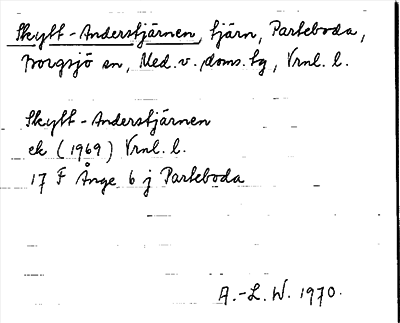 Skytt-Anderstjärnen, tjärn, Parteboda,
Borgsjö sn, Med. v. doms. tg, Vrnl. l.
Skytt-Anderstjärnen
ek (1969) Vrnl. l.
17 F Ånge 6 j Parteboda
A.-L. W. 1970.